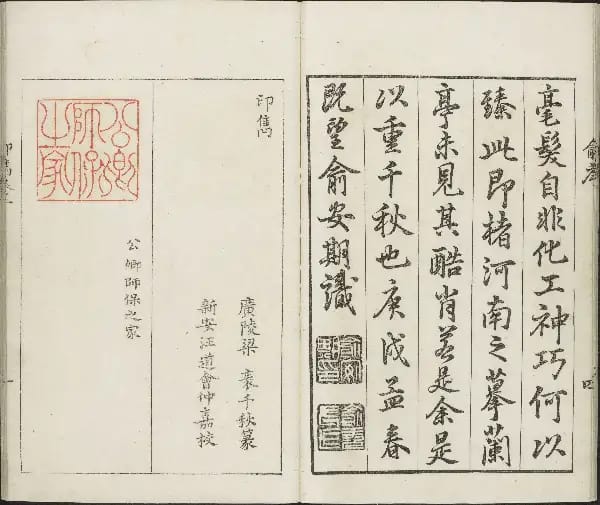 俞敘
四
毫髮自非化工神巧何以
臻此即楮河南之摹蘭
亭未見其酷肖若是余是
以重千秋也庚戌孟春
既望俞安期識
印雋
廣陵梁袠千秋篆
新安汪道會仲嘉校
公卿師保之家
公卿師保之家
印雋卷之一
一